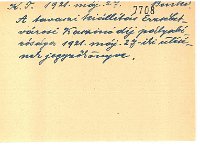 K. T. 1921. máj. 27. Benkő
7708
A tavaszi kiállítás Erzsébet-
városi Kaszinó díj pályabí-
rósága 1921. máj. 27-iki ülésé-
nek jegyzőkönyve.